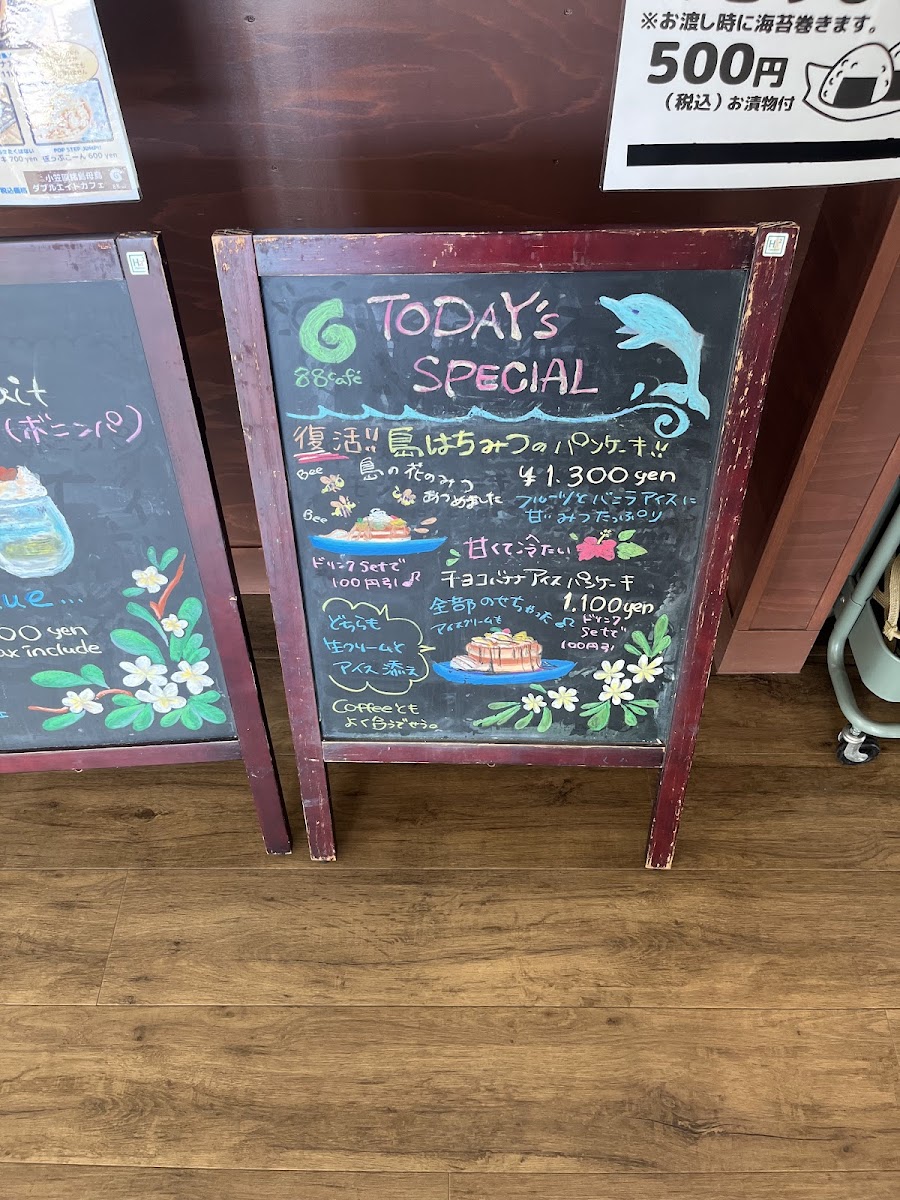 キ 700 yen
ぽっぷこーん 600 yen
小笠原諸島母島
ダブルエイトカフェ
※お渡し時に海苔巻きます。
500円
(税込)お漬物付
(ボニンパ)
00 yen
include
88café
TODAY's
SPECIAL
復活!! 島はちみつのパンケーキ!!
Bee
島の花のみつ
あつめました
¥1.300 yen
フルーツとバニラアイスに
甘いみつたっぷり
Bee
ドリンクsetで
100円引♫
甘くて冷たい
チョコバナナアイスパンケーキ
全部のせちゃった♫
アイスクリームも
1.100yen
ドリンク
setで
100円引
どちらも
生クリームと
アイス添え
Coffeeとも
よく合うでせう。